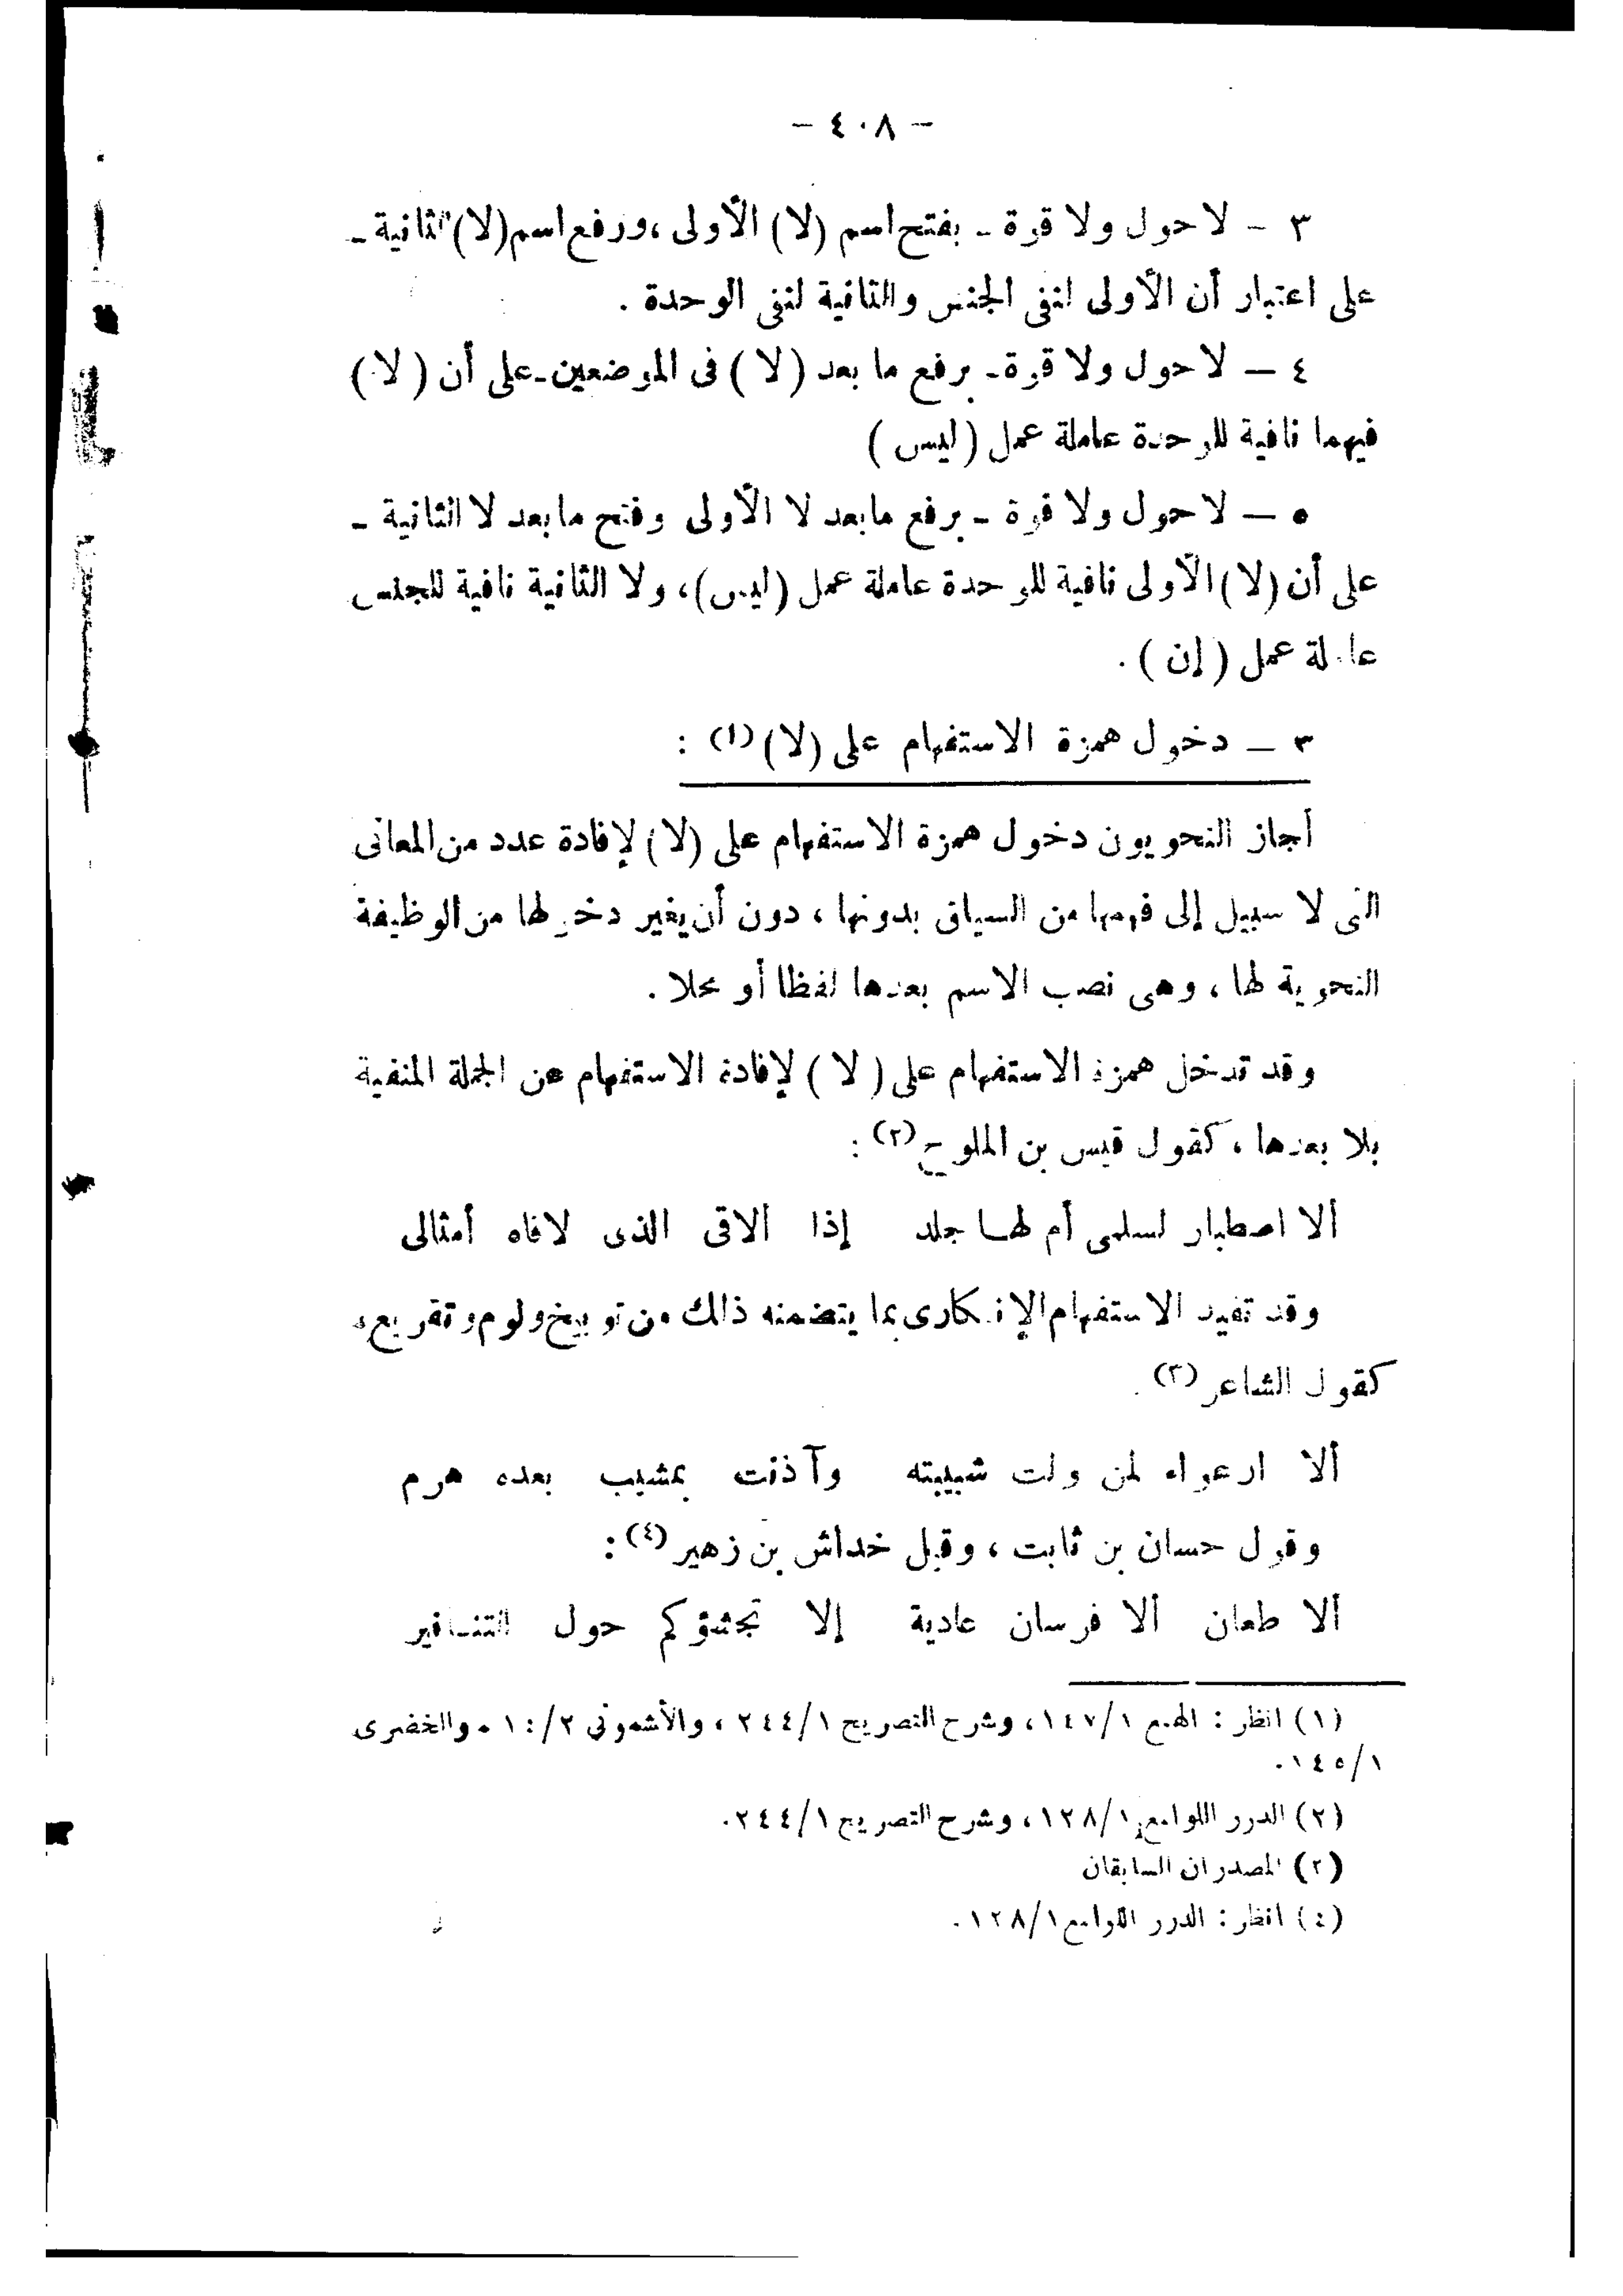 - ٤٠٨ -
٣ - لا حول ولا قوة - بفتح اسم (لا) الأولى، ورفع اسم (لا) الثانية -
على اعتبار أن الأولى لنفى الجنس والثانية لنفى الوحدة .
٤ - لا حول ولا قوة - برفع ما بعد (لا) فى الموضعين - على أن (لا)
فيهما نافية للوحدة عاملة عمل (ليس)
٥ - لا حول ولا قوة - برفع ما بعد لا الأولى وفتح ما بعد لا الثانية -
على أن (لا) الأولى نافية للوحدة عاملة عمل (ليس)، ولا الثانية نافية للجنس
عاملة عمل (إن) .
٣ - دخول همزة الاستفهام على (لا) (١) :
أجاز النحويون دخول همزة الاستفهام على (لا) لإفادة عدد من المعانى
التى لا سبيل إلى فهمها من السياق بدونها ، دون أن يغير دخولها من الوظيفة
النحوية لها ، وهى نصب الاسم بعدها لفظا أو محلا .
وقد تدخل همزة الاستفهام على (لا) لإفادة الاستفهام عن الجملة المنفية
بلا بعدها ، كقول قيس بن الملوح (٢) :
ألا اصطبار لسلمى أم لها جلد إذا ألاقى الذى لاقاه أمثالى
وقد تفيد الاستفهام الإنكارى بما يتضمنه ذلك من توبيخ ولوم وتقريع،
كقول الشاعر (٣)
ألا ارعواء لمن ولت شبيبته وآذنت بمشيب بعده هرم
وقول حسان بن ثابت ، وقيل خداش بن زهير (٤) :
ألا طعان ألا فرسان عادية إلا تجشؤكم حول التنانير
(١) انظر : الهمع ١٤٧/١، وشرح التصريح ٢٤٤/١ ، والأشمونى ٢/ ، والخضرى
١٤٥/١.
(٢) الدرر اللوامع ١٢٨/١، وشرح التصريح ٢٤٤/١.
(٣) المصدران السابقان
(٤) انظر : الدرر اللوامع ١٢٨/١.